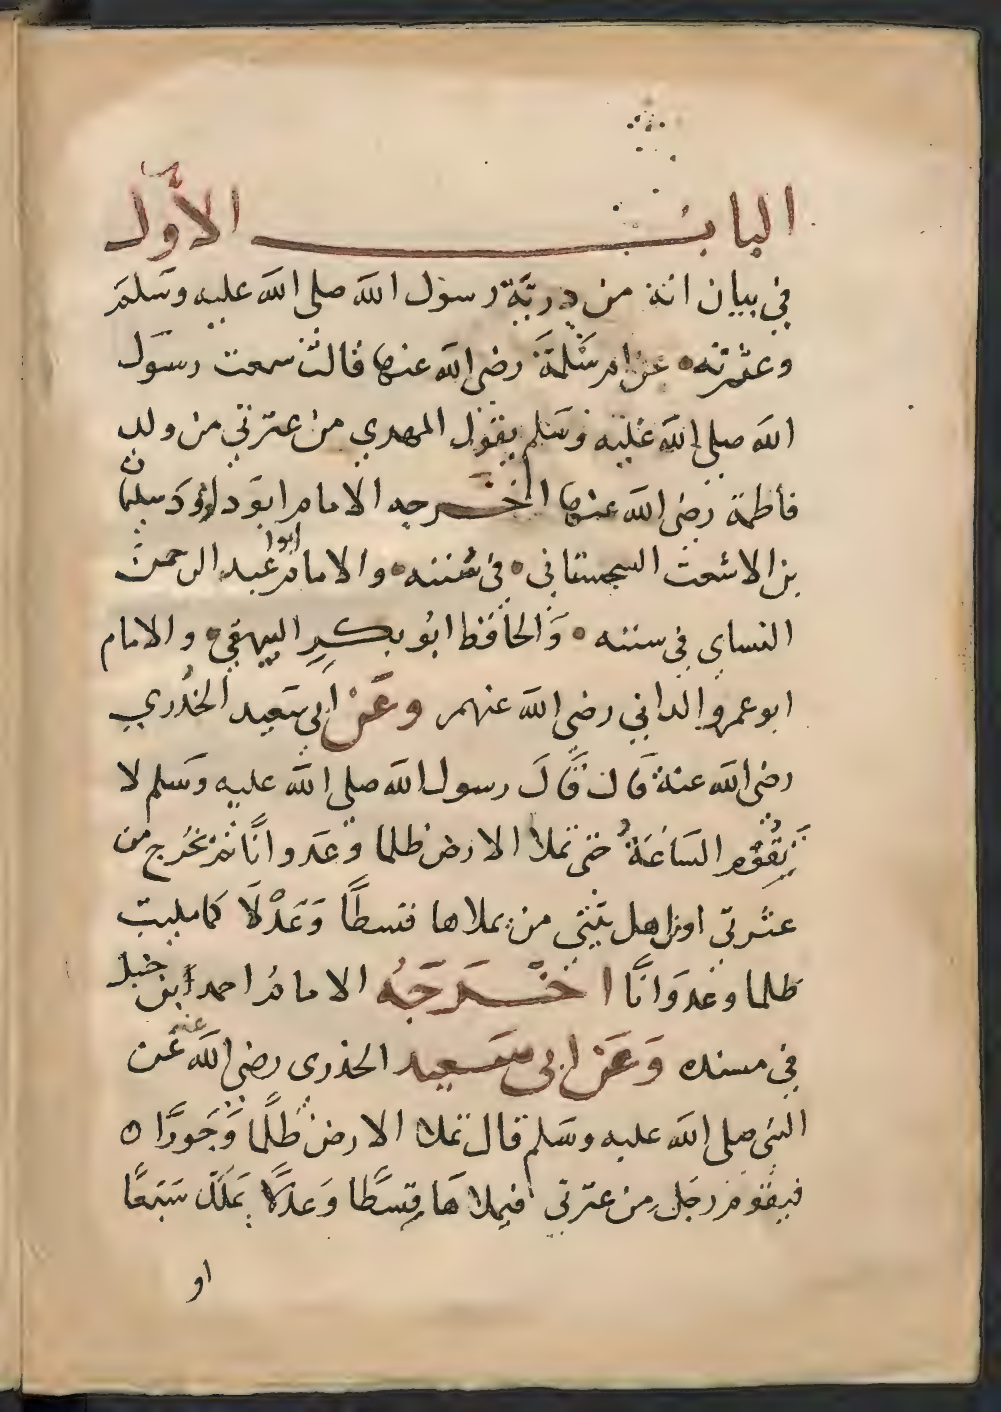 الباب الاول
في بيان انه من ذرية رسول الله صلى الله عليه وسلم
وعترته عن ام سلمة رضى الله عنها قالت سمعت رسول
الله صلى الله عليه وسلم يقول المهدي من عترتي من ولد
فاطمة رضى الله عنها اخرجه الامام ابو داوود سليمان
بن الاشعث السجستاني في سننه والامام ابوا عبد الرحمن
النساي في سننه والحافظ ابو بكر البيهقي والامام
ابو عمرو الداني رضى الله عنهم وعن ابي سعيد الخدري
رضى الله عنه قال قال رسول الله صلى الله عليه وسلم لا
تقوم الساعة حتى تملا الارض ظلما وعدوانا ثم يخرج من
عترتي او من اهل بيتي من يملاها قسطا وعدلا كما مليت
ظلما وعدوانا اخرجه الامام احمد ابن حنبل
في مسنده وعن ابي سعيد الخذرى رضي الله عنه عن
النبي صلى الله عليه وسلم قال تملا الارض ظلما وجورا
فيقوم رجل من عترتي فيملاها قسطا وعدلا يملك سبعا
او